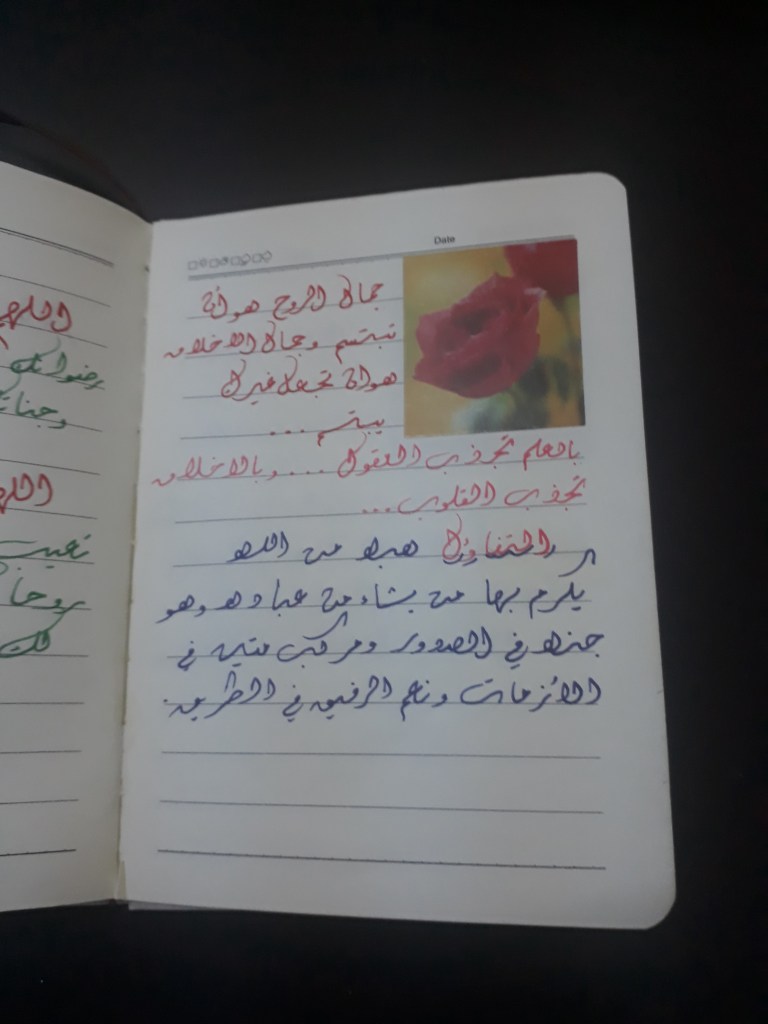 Date
جمال الروح هو أن
تبتسم وجمال الاخلاق
هو ان تجعل غيرك
يبتسم ...
بالعلم تجذب العقول ... وبالاخلاق
تجذب القلوب ...
التفاؤل هبه من الله
يكرم بها من يشاء من عباده وهو
جنه في الصدور ومركب متين في
الأزمات ونعم الرفيق في الطريق.
اللهم
رضوانك
وجنات
اللهم
روحا
لك